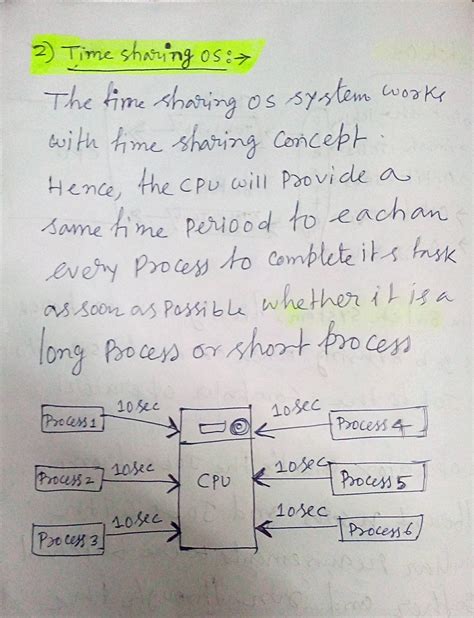 2) Time sharing OS:→
The time sharing OS system works
with time sharing concept.
Hence, the CPU will Provide a
same time Periood to eachan
every Process to complete its task
as soon as Possible whether it is a
long Process or short Process
Process1 10sec
Process2 10sec
Process3 10sec
CPU
10sec Process 4
10sec Process 5
10sec Process 6